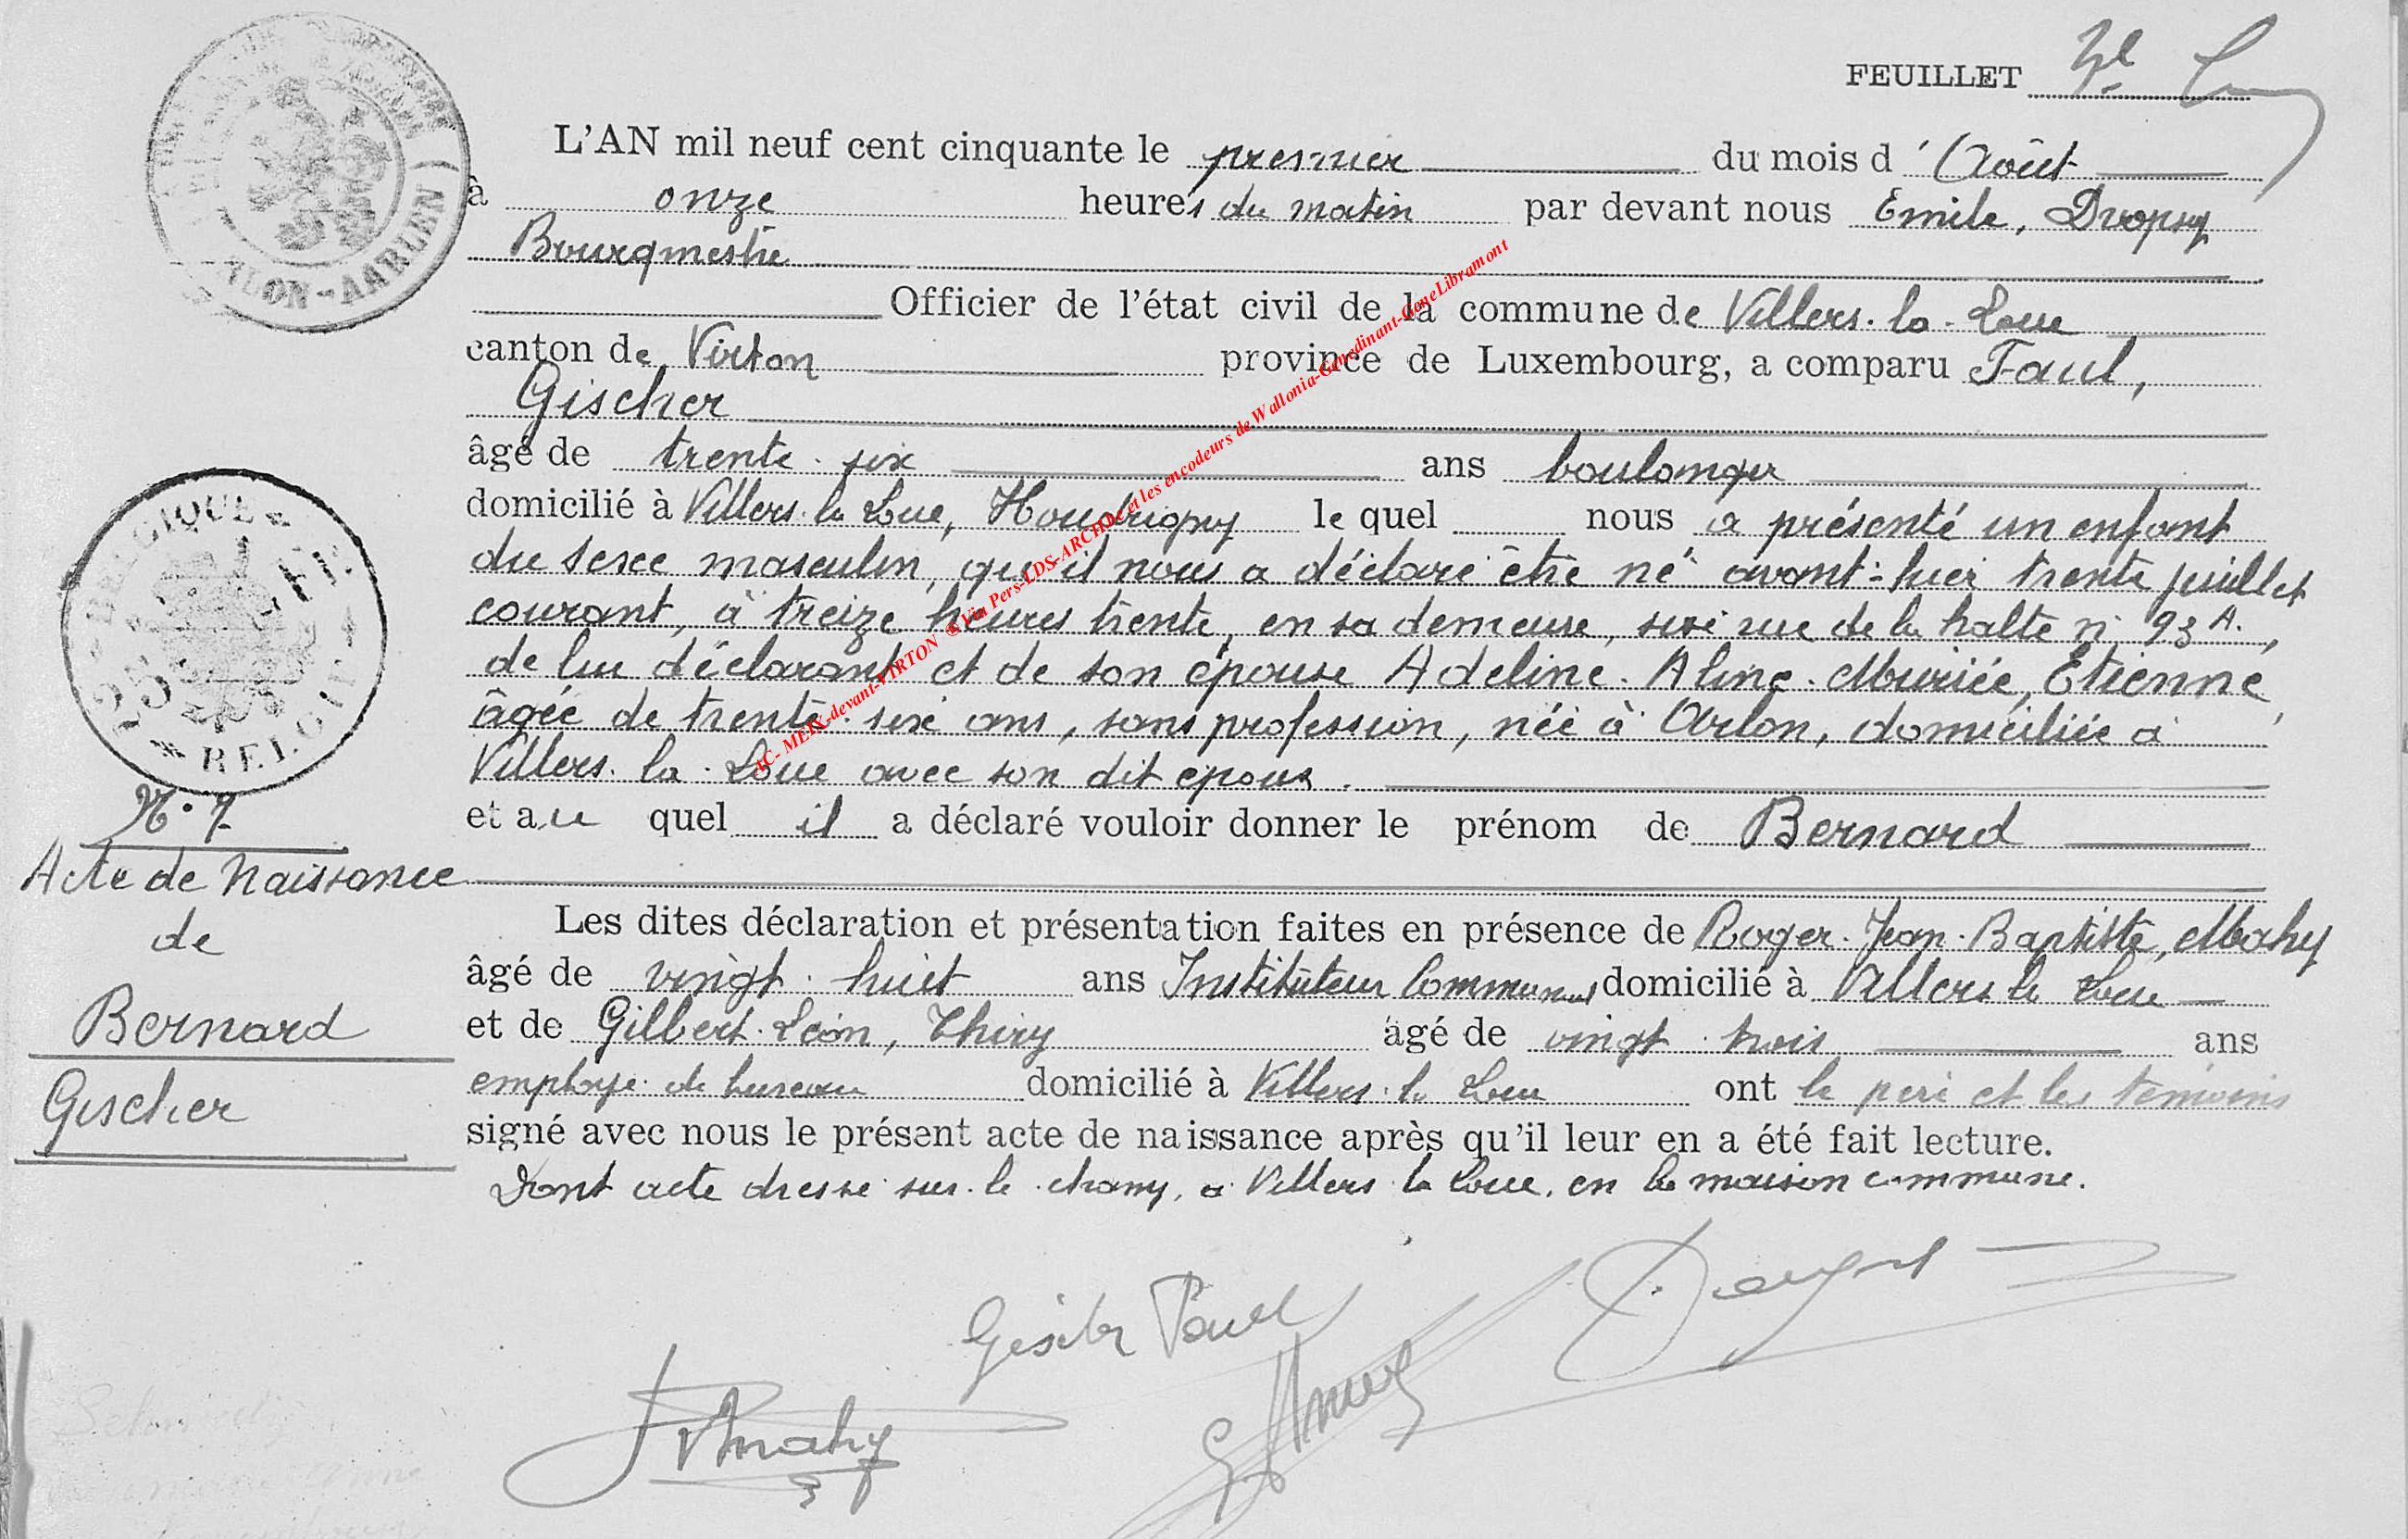 FEUILLET
L'AN mil neuf cent cinquante le premier du mois d'Août
à onze heures du matin par devant nous Emile, Dropsy
Bourgmestre
Officier de l'état civil de la commune de Villers-la-Loue
canton de Virton province de Luxembourg, a comparu Paul,
Gischer
âgé de trente-six ans boulanger
domicilié à Villers-la-Loue, Houdrigny lequel nous a présenté un enfant
du sexe masculin, qu'il nous a déclaré être né avant-hier trente juillet
courant, à treize heures trente, en sa demeure, sise rue de la halte n° 93 A.,
de lui déclarant et de son épouse Adeline-Aline-Mariée, Etienne,
âgée de trente-six ans, sans profession, née à Arlon, domiciliée à
Villers-la-Loue avec son dit époux.
et au quel il a déclaré vouloir donner le prénom de Bernard
Les dites déclaration et présentation faites en présence de Roger-Jean-Baptiste, Mahy
âgé de vingt-huit ans Instituteur Communal domicilié à Villers-la-Loue
et de Gilbert-Léon, Thiry âgé de vingt-trois ans
employé de bureau domicilié à Villers-la-Loue ont le père et les témoins
signé avec nous le présent acte de naissance après qu'il leur en a été fait lecture.
Dont acte dressé sur-le-champ, à Villers-la-Loue, en la maison commune.
Gischer Paul
Mahy
N° 7
Acte de Naissance
de
Bernard
Gischer
ARLON-AARLEN
BELGIQUE
BELGIË
AC- MEIX-devant-VIRTON © Via Pers-LDS-ARCHIve et les encodeurs de Wallonia-Genedinant-GeneLibramont